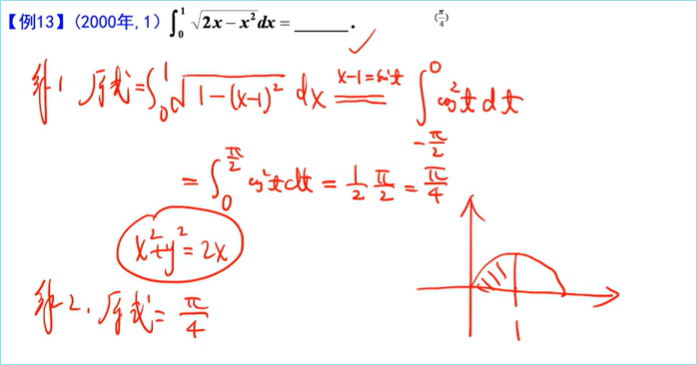 【例13】(2000年, 1) ∫₀¹ √(2x − x²) dx = ______. (π/4)
解1 原式 = ∫₀¹ √(1−(x−1)²) dx  x−1=sin t  ∫_{−π/2}^{0} cos²t dt
= ∫₀^{π/2} cos²t dt = 1/2 π/2 = π/4
x²+y²=2x
解2. 原式 = π/4
1